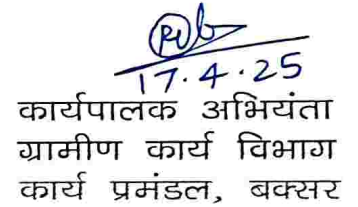 17.4.25
कार्यपालक अभियंता
ग्रामीण कार्य विभाग
कार्य प्रमंडल, बक्सर